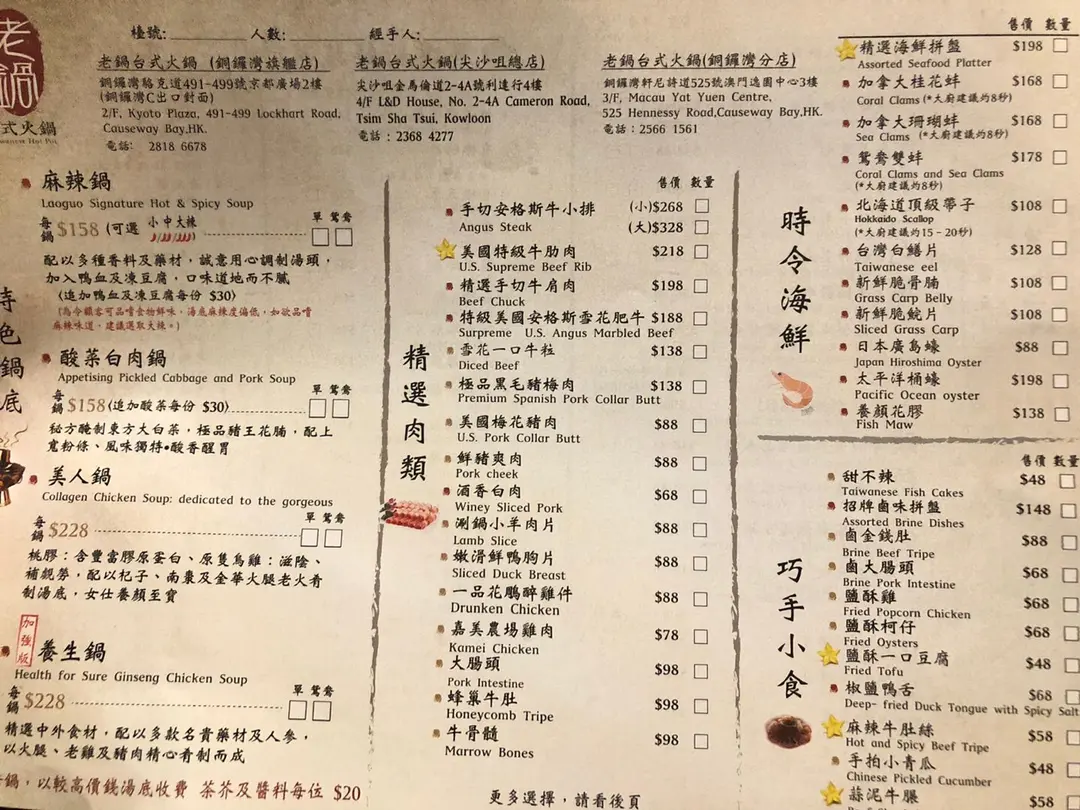 老鍋
式火鍋
檯號:
人數:
經手人:
老鍋台式火鍋 (銅鑼灣旗艦店)
銅鑼灣駱克道491-499號京都廣場2樓
(銅鑼灣C出口對面)
2/F, Kyoto Plaza, 491-499 Lockhart Road,
Causeway Bay,HK.
電話: 2818 6678
老鍋台式火鍋(尖沙咀總店)
尖沙咀金馬倫道2-4A號利達行4樓
4/F L&D House, No. 2-4A Cameron Road,
Tsim Sha Tsui, Kowloon
電話：2368 4277
老鍋台式火鍋(銅鑼灣分店)
銅鑼灣軒尼詩道525號澳門逸園中心3樓
3/F, Macau Yat Yuen Centre,
525 Hennessy Road,Causeway Bay,HK.
電話：2566 1561
特色鍋底
麻辣鍋
Laoguo Signature Hot & Spicy Soup
單 鴛鴦
每鍋 $158 (可選 小中大辣
配以多種香料及藥材，誠意用心調制湯頭，
加入鴨血及凍豆腐，口味道地而不膩
(追加鴨血及凍豆腐每份 $30)
(為令顧客可品嚐食物鮮味，湯底麻辣度偏低，如欲品嚐
麻辣味道，建議選取大辣。)
酸菜白肉鍋
Appetising Pickled Cabbage and Pork Soup
單 鴛鴦
每鍋 $158 (追加酸菜每份 $30)
秘方醃制東方大白菜，極品豬王花腩，配上
寬粉條、風味獨特•酸香醒胃
美人鍋
Collagen Chicken Soup: dedicated to the gorgeous
單 鴛鴦
每鍋 $228
桃膠：含豐富膠原蛋白、原隻烏雞：滋陰、
補親勞，配以杞子、南棗及金華火腿老火肴
制湯底，女仕養顏至寶
加強版
養生鍋
Health for Sure Ginseng Chicken Soup
單 鴛鴦
每鍋 $228
精選中外食材，配以多款名貴藥材及人參，
以火腿、老雞及豬肉精心肴制而成
鍋，以較高價錢湯底收費 茶芥及醬料每位 $20
精選肉類
售價 數量
手切安格斯牛小排 (小)$268
Angus Steak (大)$328
美國特級牛肋肉 $218
U.S. Supreme Beef Rib
精選手切牛肩肉 $198
Beef Chuck
特級美國安格斯雪花肥牛 $188
Surpreme U.S. Angus Marbled Beef
雪花一口牛粒 $138
Diced Beef
極品黑毛豬梅肉 $138
Premium Spanish Pork Collar Butt
美國梅花豬肉 $88
U.S. Pork Collar Butt
鮮豬爽肉 $88
Pork cheek
酒香白肉 $68
Winey Sliced Pork
涮鍋小羊肉片 $88
Lamb Slice
嫩滑鮮鴨胸片 $88
Sliced Duck Breast
一品花鵰醉雞件 $88
Drunken Chicken
嘉美農場雞肉 $78
Kamei Chicken
大腸頭 $98
Pork Intestine
蜂巢牛肚 $98
Honeycomb Tripe
牛骨髓 $98
Marrow Bones
更多選擇，請看後頁
時令海鮮
售價 數量
精選海鮮拼盤 $198
Assorted Seafood Platter
加拿大桂花蚌 $168
Coral Clams (*大廚建議約8秒)
加拿大珊瑚蚌 $168
Sea Clams (*大廚建議約8秒)
鴛鴦雙蚌 $178
Coral Clams and Sea Clams
(*大廚建議約8秒)
北海道頂級帶子 $108
Hokkaido Scallop
(*大廚建議約15－20秒)
台灣白鱔片 $128
Taiwanese eel
新鮮脆骨腩 $108
Grass Carp Belly
新鮮脆鯇片 $108
Sliced Grass Carp
日本廣島蠔 $88
Japan Hiroshima Oyster
太平洋桶蠔 $198
Pacific Ocean oyster
養顏花膠 $138
Fish Maw
巧手小食
售價 數量
甜不辣 $48
Taiwanese Fish Cakes
招牌鹵味拼盤 $148
Assorted Brine Dishes
鹵金錢肚 $88
Brine Beef Tripe
鹵大腸頭 $68
Brine Pork Intestine
鹽酥雞 $68
Fried Popcorn Chicken
鹽酥柯仔 $68
Fried Oysters
鹽酥一口豆腐 $48
Fried Tofu
椒鹽鴨舌 $68
Deep- fried Duck Tongue with Spicy Salt
麻辣牛肚絲 $58
Hot and Spicy Beef Tripe
手拍小青瓜 $48
Chinese Pickled Cucumber
蒜泥牛腱 $58